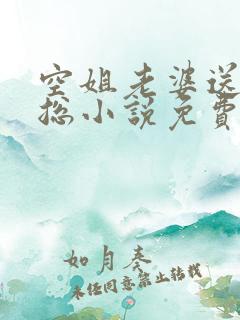 空姐老婆送
总小说免费
如月奏
未经同意禁止转载